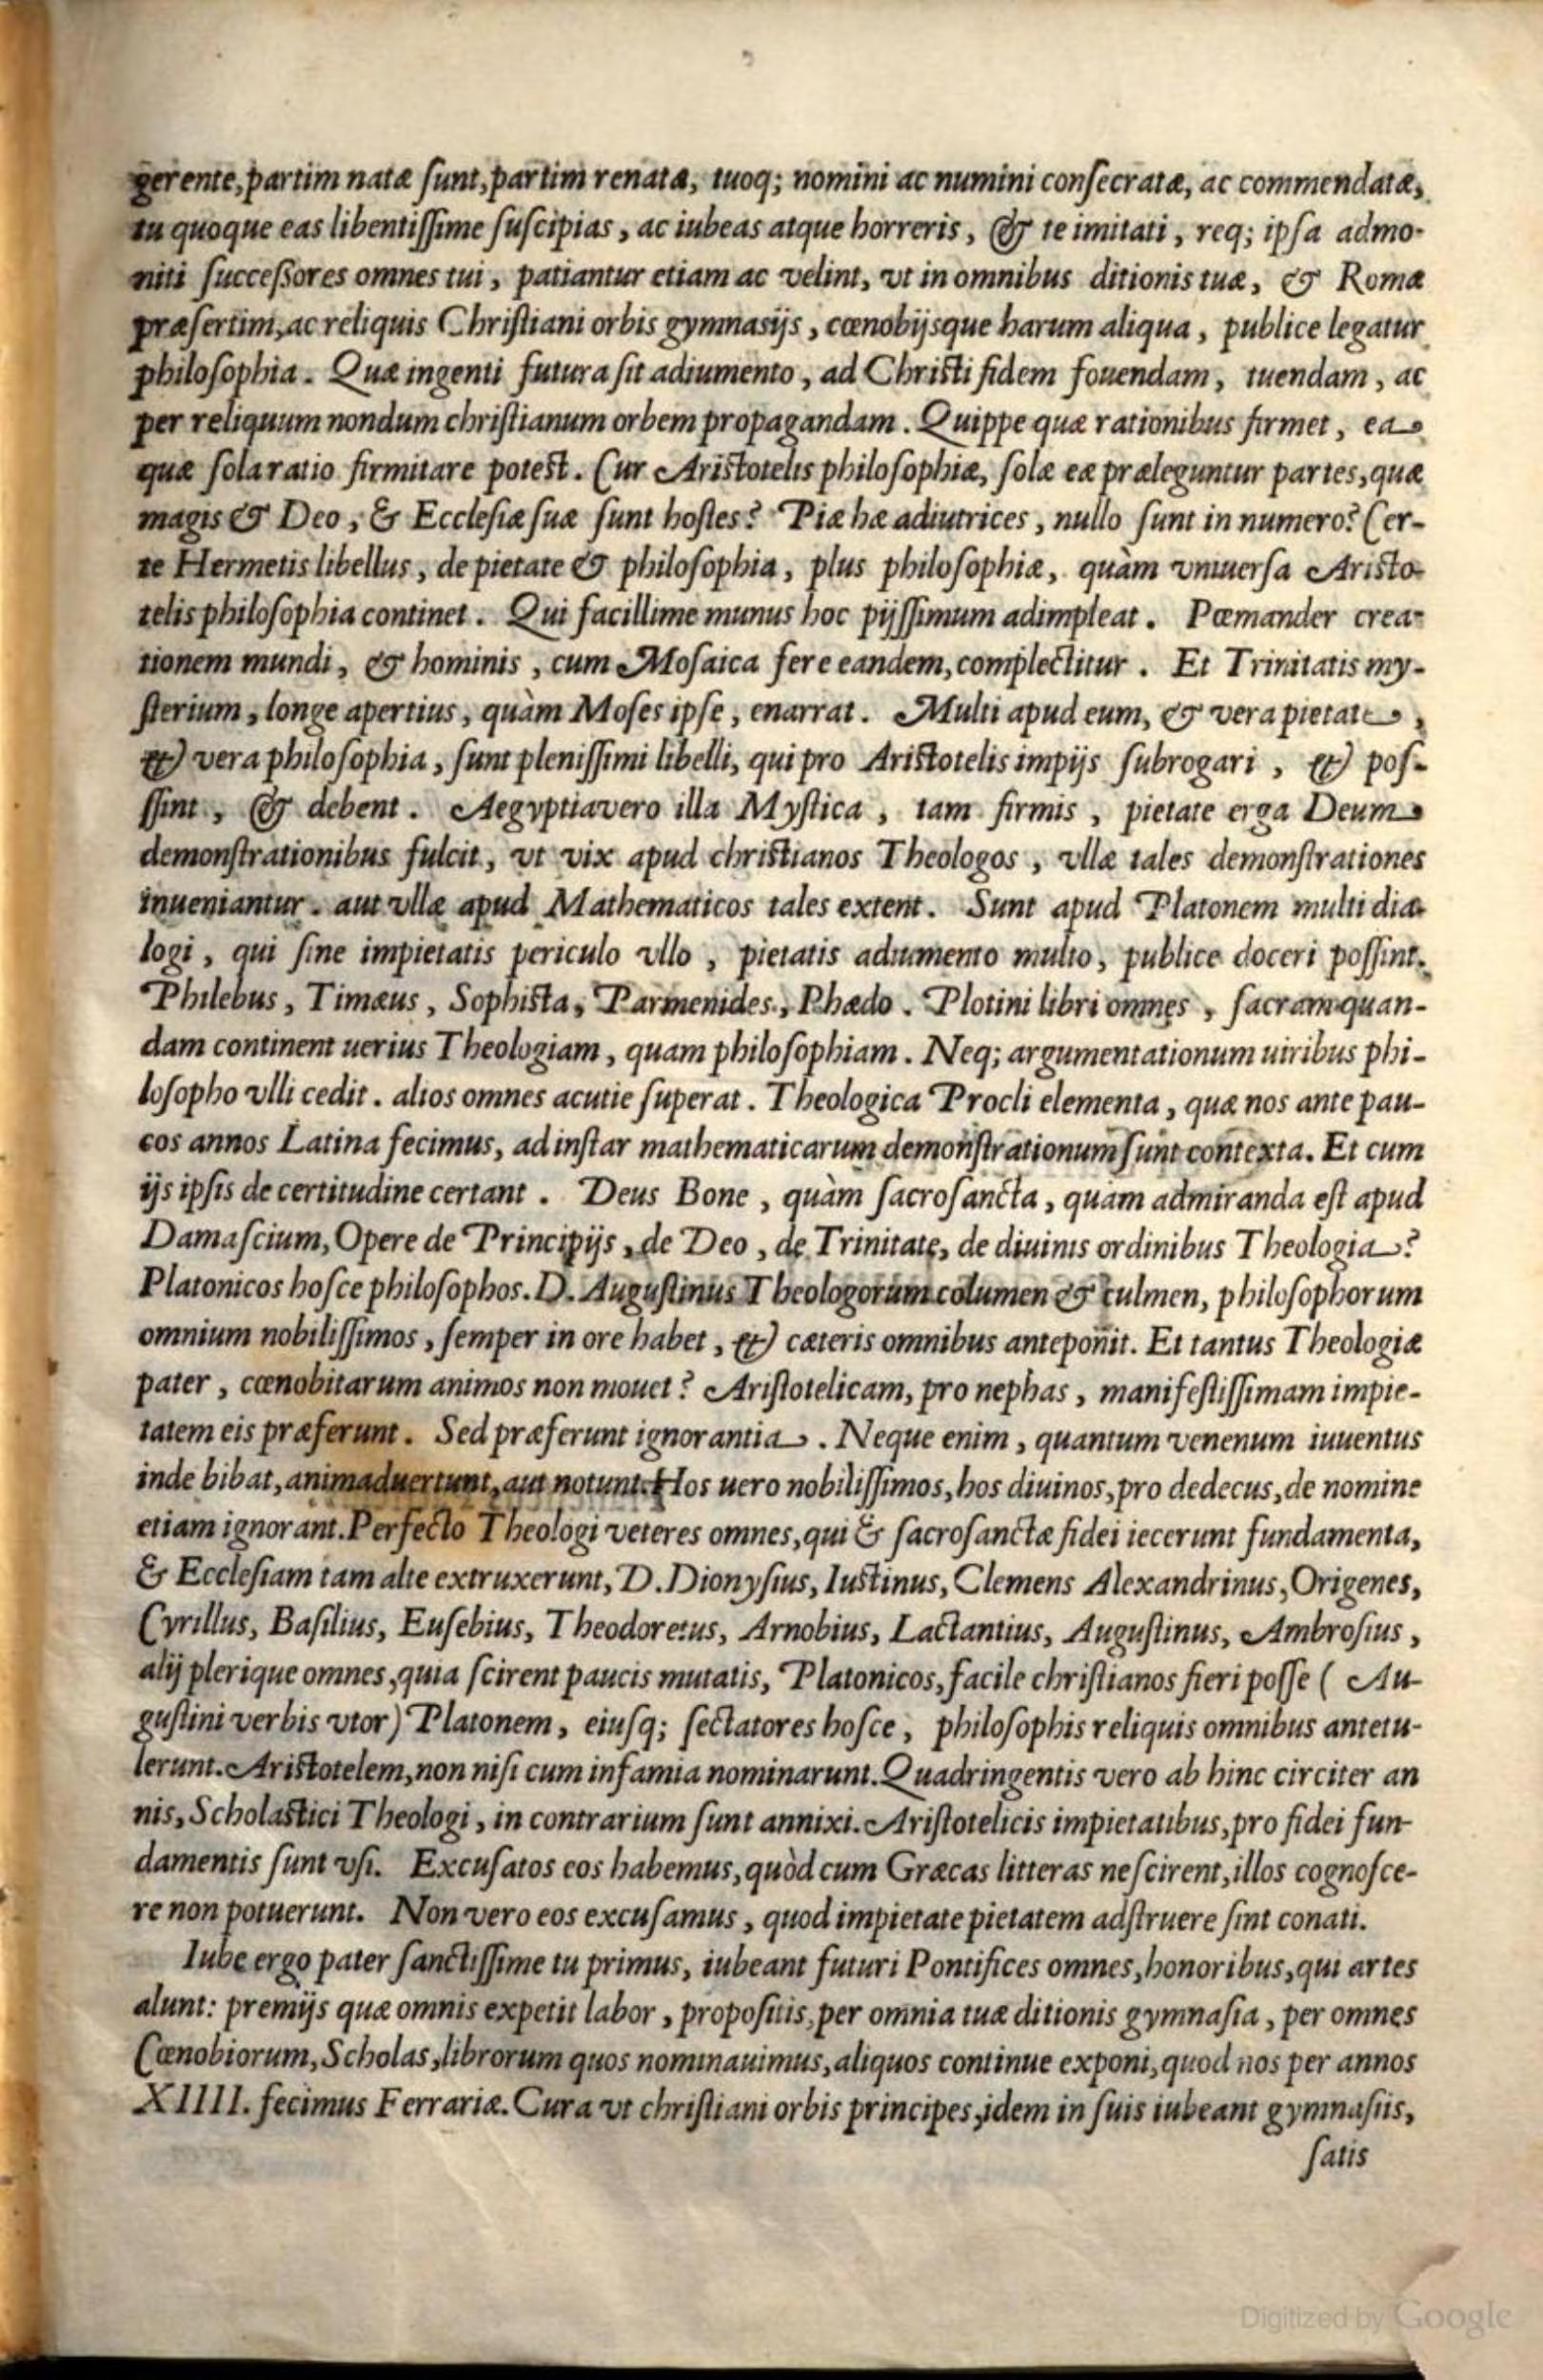 gerente, partim natæ sunt, partim renatæ, tuoq; nomini ac numini consecratæ, ac commendatæ,
tu quoque eas libentissime suscipias, ac iubeas atque horreris, & te imitati, req; ipsa admo-
niti successores omnes tui, patiantur etiam ac velint, vt in omnibus ditionis tuæ, & Romæ
præsertim, ac reliquis Christiani orbis gymnasijs, cœnobijsque harum aliqua, publice legatur
philosophia. Quæ ingenti futura sit adiumento, ad Christi fidem fouendam, tuendam, ac
per reliquum nondum christianum orbem propagandam. Quippe quæ rationibus firmet, ea
quæ sola ratio firmitare potest. Cur Aristotelis philosophiæ, solæ eæ præleguntur partes, quæ
magis & Deo, & Ecclesiæ suæ sunt hostes? Piæ hæ adiutrices, nullo sunt in numero? Cer-
te Hermetis libellus, de pietate & philosophia, plus philosophiæ, quàm vniuersa Aristo-
telis philosophia continet. Qui facillime munus hoc pijssimum adimpleat. Pœmander crea-
tionem mundi, & hominis, cum Mosaica fere eandem, complectitur. Et Trinitatis my-
sterium, longe apertius, quàm Moses ipse, enarrat. Multi apud eum, & vera pietate,
& vera philosophia, sunt plenissimi libelli, qui pro Aristotelis impijs subrogari, & pos-
ssint, & debent. Aegyptiavero illa Mystica, tam firmis, pietate erga Deum
demonstrationibus fulcit, vt vix apud christianos Theologos, vllæ tales demonstrationes
inueniantur. aut vllæ apud Mathematicos tales extent. Sunt apud Platonem multi dia-
logi, qui sine impietatis periculo vllo, pietatis adiumento multo, publice doceri possint.
Philebus, Timæus, Sophista, Parmenides, Phædo. Plotini libri omnes, sacram quan-
dam continent uerius Theologiam, quam philosophiam. Neq; argumentationum uiribus phi-
losopho vlli cedit. alios omnes acutie superat. Theologica Procli elementa, quæ nos ante pau-
cos annos Latina fecimus, ad instar mathematicarum demonstrationum sunt contexta. Et cum
ijs ipsis de certitudine certant. Deus Bone, quàm sacrosancta, quàm admiranda est apud
Damascium, Opere de Principijs, de Deo, de Trinitate, de diuinis ordinibus Theologia?
Platonicos hosce philosophos. D. Augustinus Theologorum columen & culmen, philosophorum
omnium nobilissimos, semper in ore habet, & cæteris omnibus anteponit. Et tantus Theologiæ
pater, cœnobitarum animos non mouet? Aristotelicam, pro nephas, manifestissimam impie-
tatem eis præferunt. Sed præferunt ignorantia. Neque enim, quantum venenum iuuentus
inde bibat, animaduertunt, aut notunt. Hos uero nobilissimos, hos diuinos, pro dedecus, de nomine
etiam ignorant. Perfecto Theologi veteres omnes, qui & sacrosanctæ fidei iecerunt fundamenta,
& Ecclesiam tam alte extruxerunt, D. Dionysius, Iustinus, Clemens Alexandrinus, Origenes,
Cyrillus, Basilius, Eusebius, Theodoretus, Arnobius, Lactantius, Augustinus, Ambrosius,
alij plerique omnes, quia scirent paucis mutatis, Platonicos, facile christianos fieri posse ( Au-
gustini verbis vtor) Platonem, eiusq; sectatores hosce, philosophis reliquis omnibus antetu-
lerunt. Aristotelem, non nisi cum infamia nominarunt. Quadringentis vero ab hinc circiter an
nis, Scholastici Theologi, in contrarium sunt annixi. Aristotelicis impietatibus, pro fidei fun-
damentis sunt vsi. Excusatos eos habemus, quòd cum Græcas litteras nescirent, illos cognosce-
re non potuerunt. Non vero eos excusamus, quod impietate pietatem adstruere sint conati.
Iube ergo pater sanctissime tu primus, iubeant futuri Pontifices omnes, honoribus, qui artes
alunt: premijs quæ omnis expetit labor, propositis, per omnia tuæ ditionis gymnasia, per omnes
Cœnobiorum, Scholas, librorum quos nominauimus, aliquos continue exponi, quod nos per annos
XIIII. fecimus Ferrariæ. Cura vt christiani orbis principes, idem in suis iubeant gymnasiis,
satis
Digitized by Google